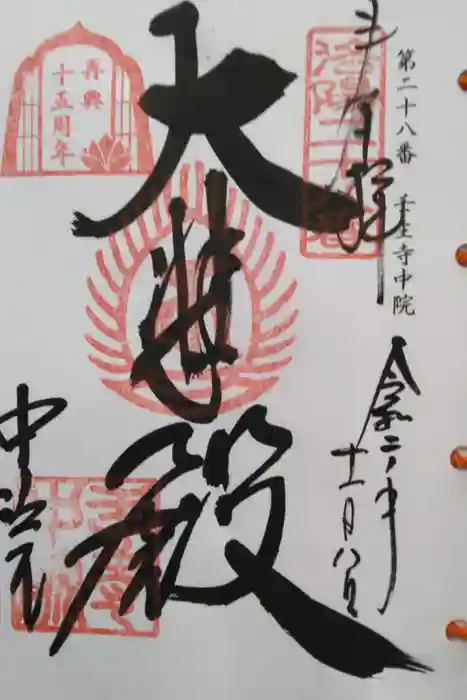 第二十八番 壬生寺中院
奉拝
令和二年
十一月八日
洛陽二十八番
大悲殿
再興
十五周年
中院